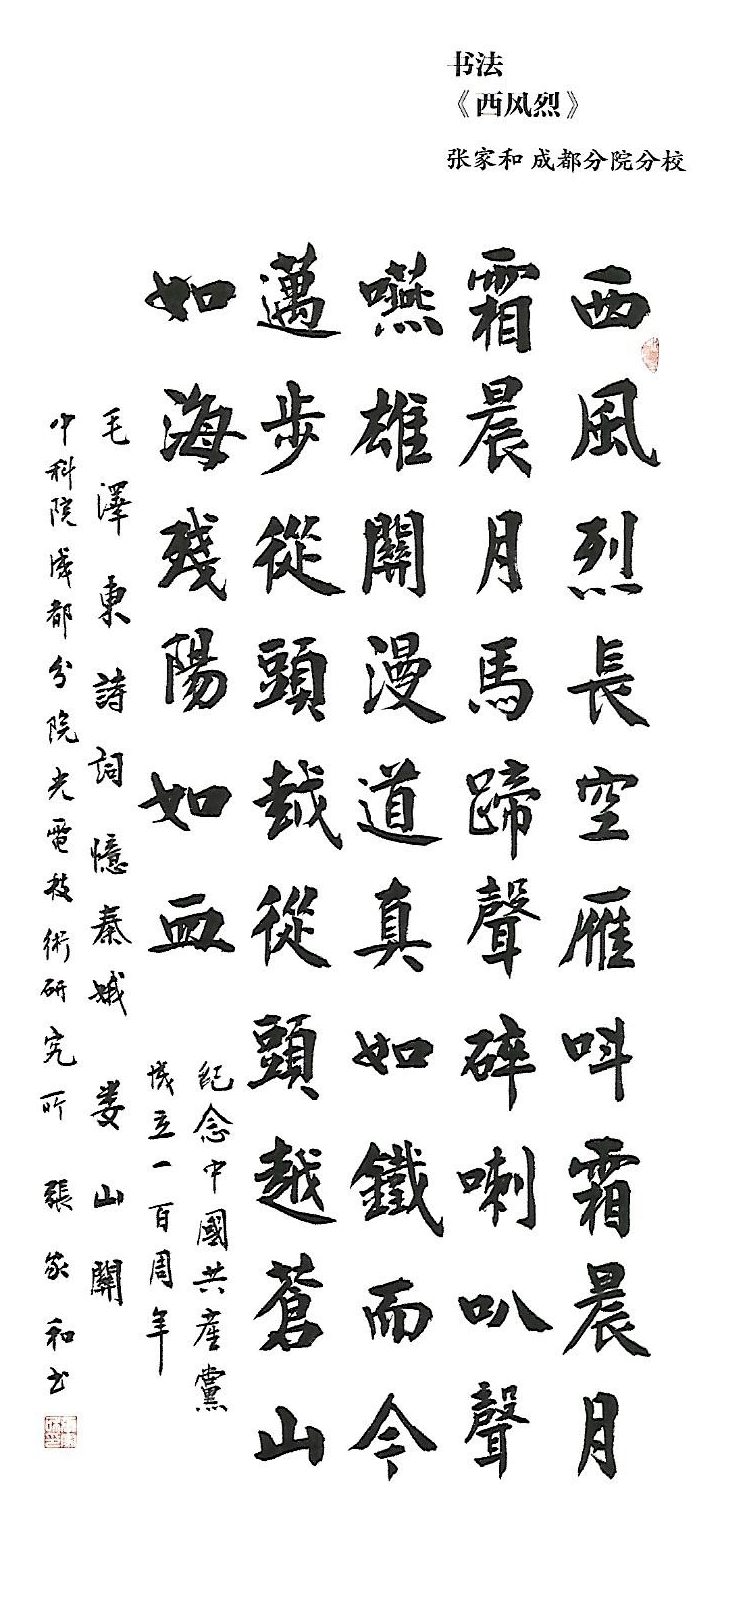 书法
《西风烈》
张家和 成都分院分校
西風烈長空雁叫霜晨月
霜晨月馬蹄聲碎喇叭聲
嚥雄關漫道真如鐵而今
邁步從頭越從頭越蒼山
如海殘陽如血
紀念中國共產黨
成立一百周年
毛澤東詩詞憶秦娥 娄山關
中科院成都分院光電技術研究所 張家和书